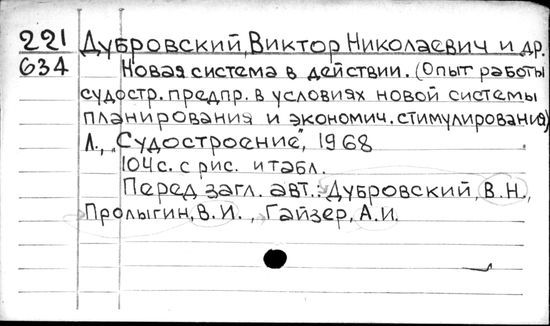 221 Дубровский, Виктор Николаевич и др.
634 Новая система в действии. (Опыт работы
судостр. предпр. в условиях новой системы
планирования и экономич. стимулирования)
Л., „Судостроение", 1968
104 с. с рис. и табл.
Перед загл. авт.: Дубровский, В.Н.,
Пролыгин, В.И., Гайзер, А.И.